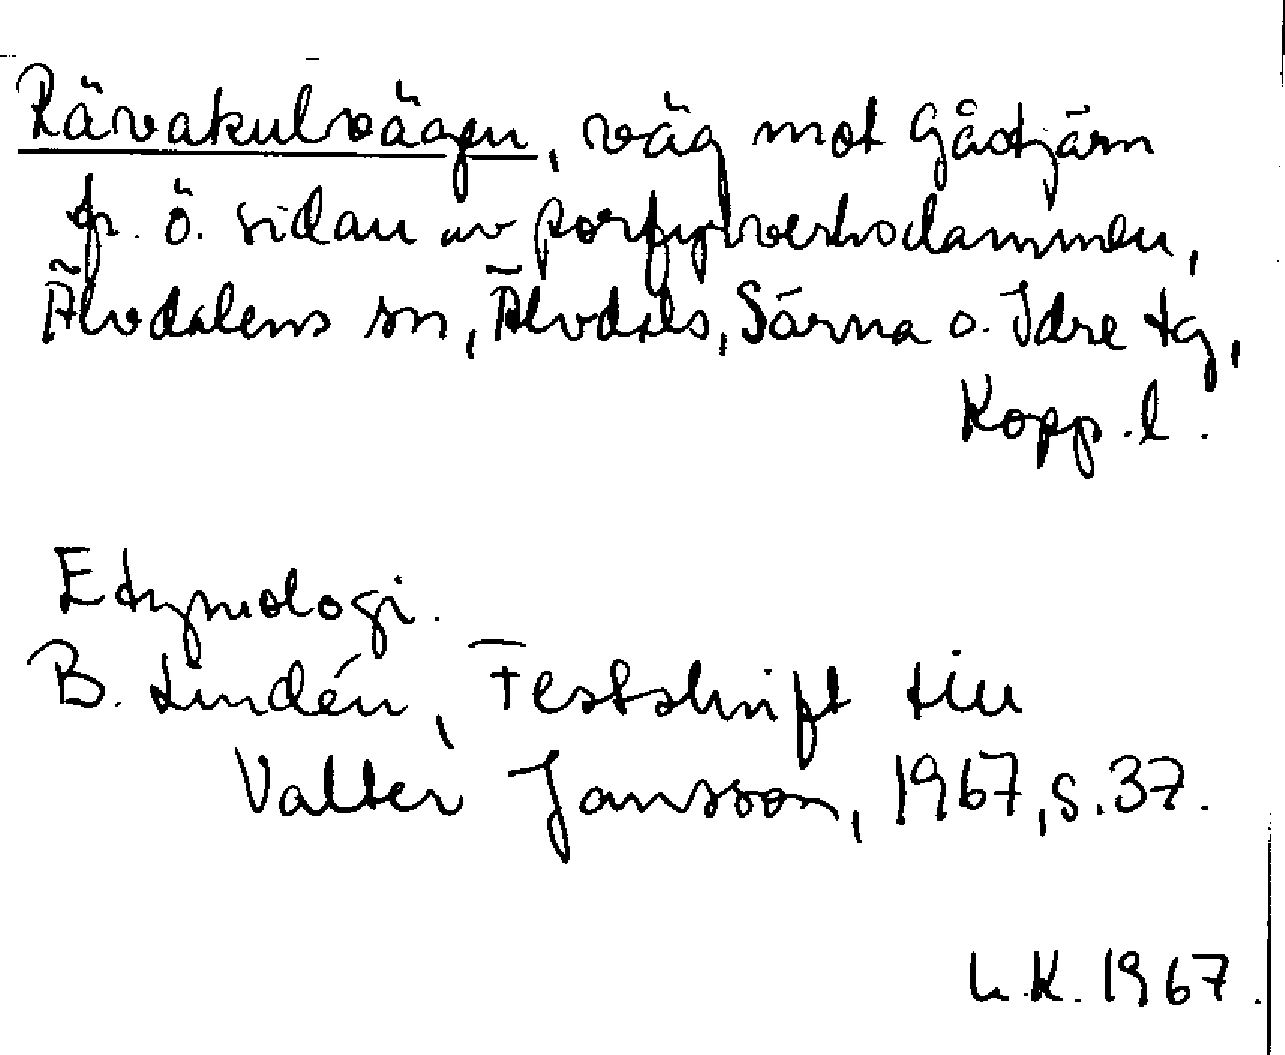 Rävakulvägen, väg mot Gåstjärn
fr. ö. sidan av porfyrverksdammen,
Älvdalens sn, Älvdals, Särna o. Idre tg,
Kopp. l.
Etymologi.
B. Lindén, Festskrift till
Valter Jansson, 1967, s. 37.
L.K. 1967.